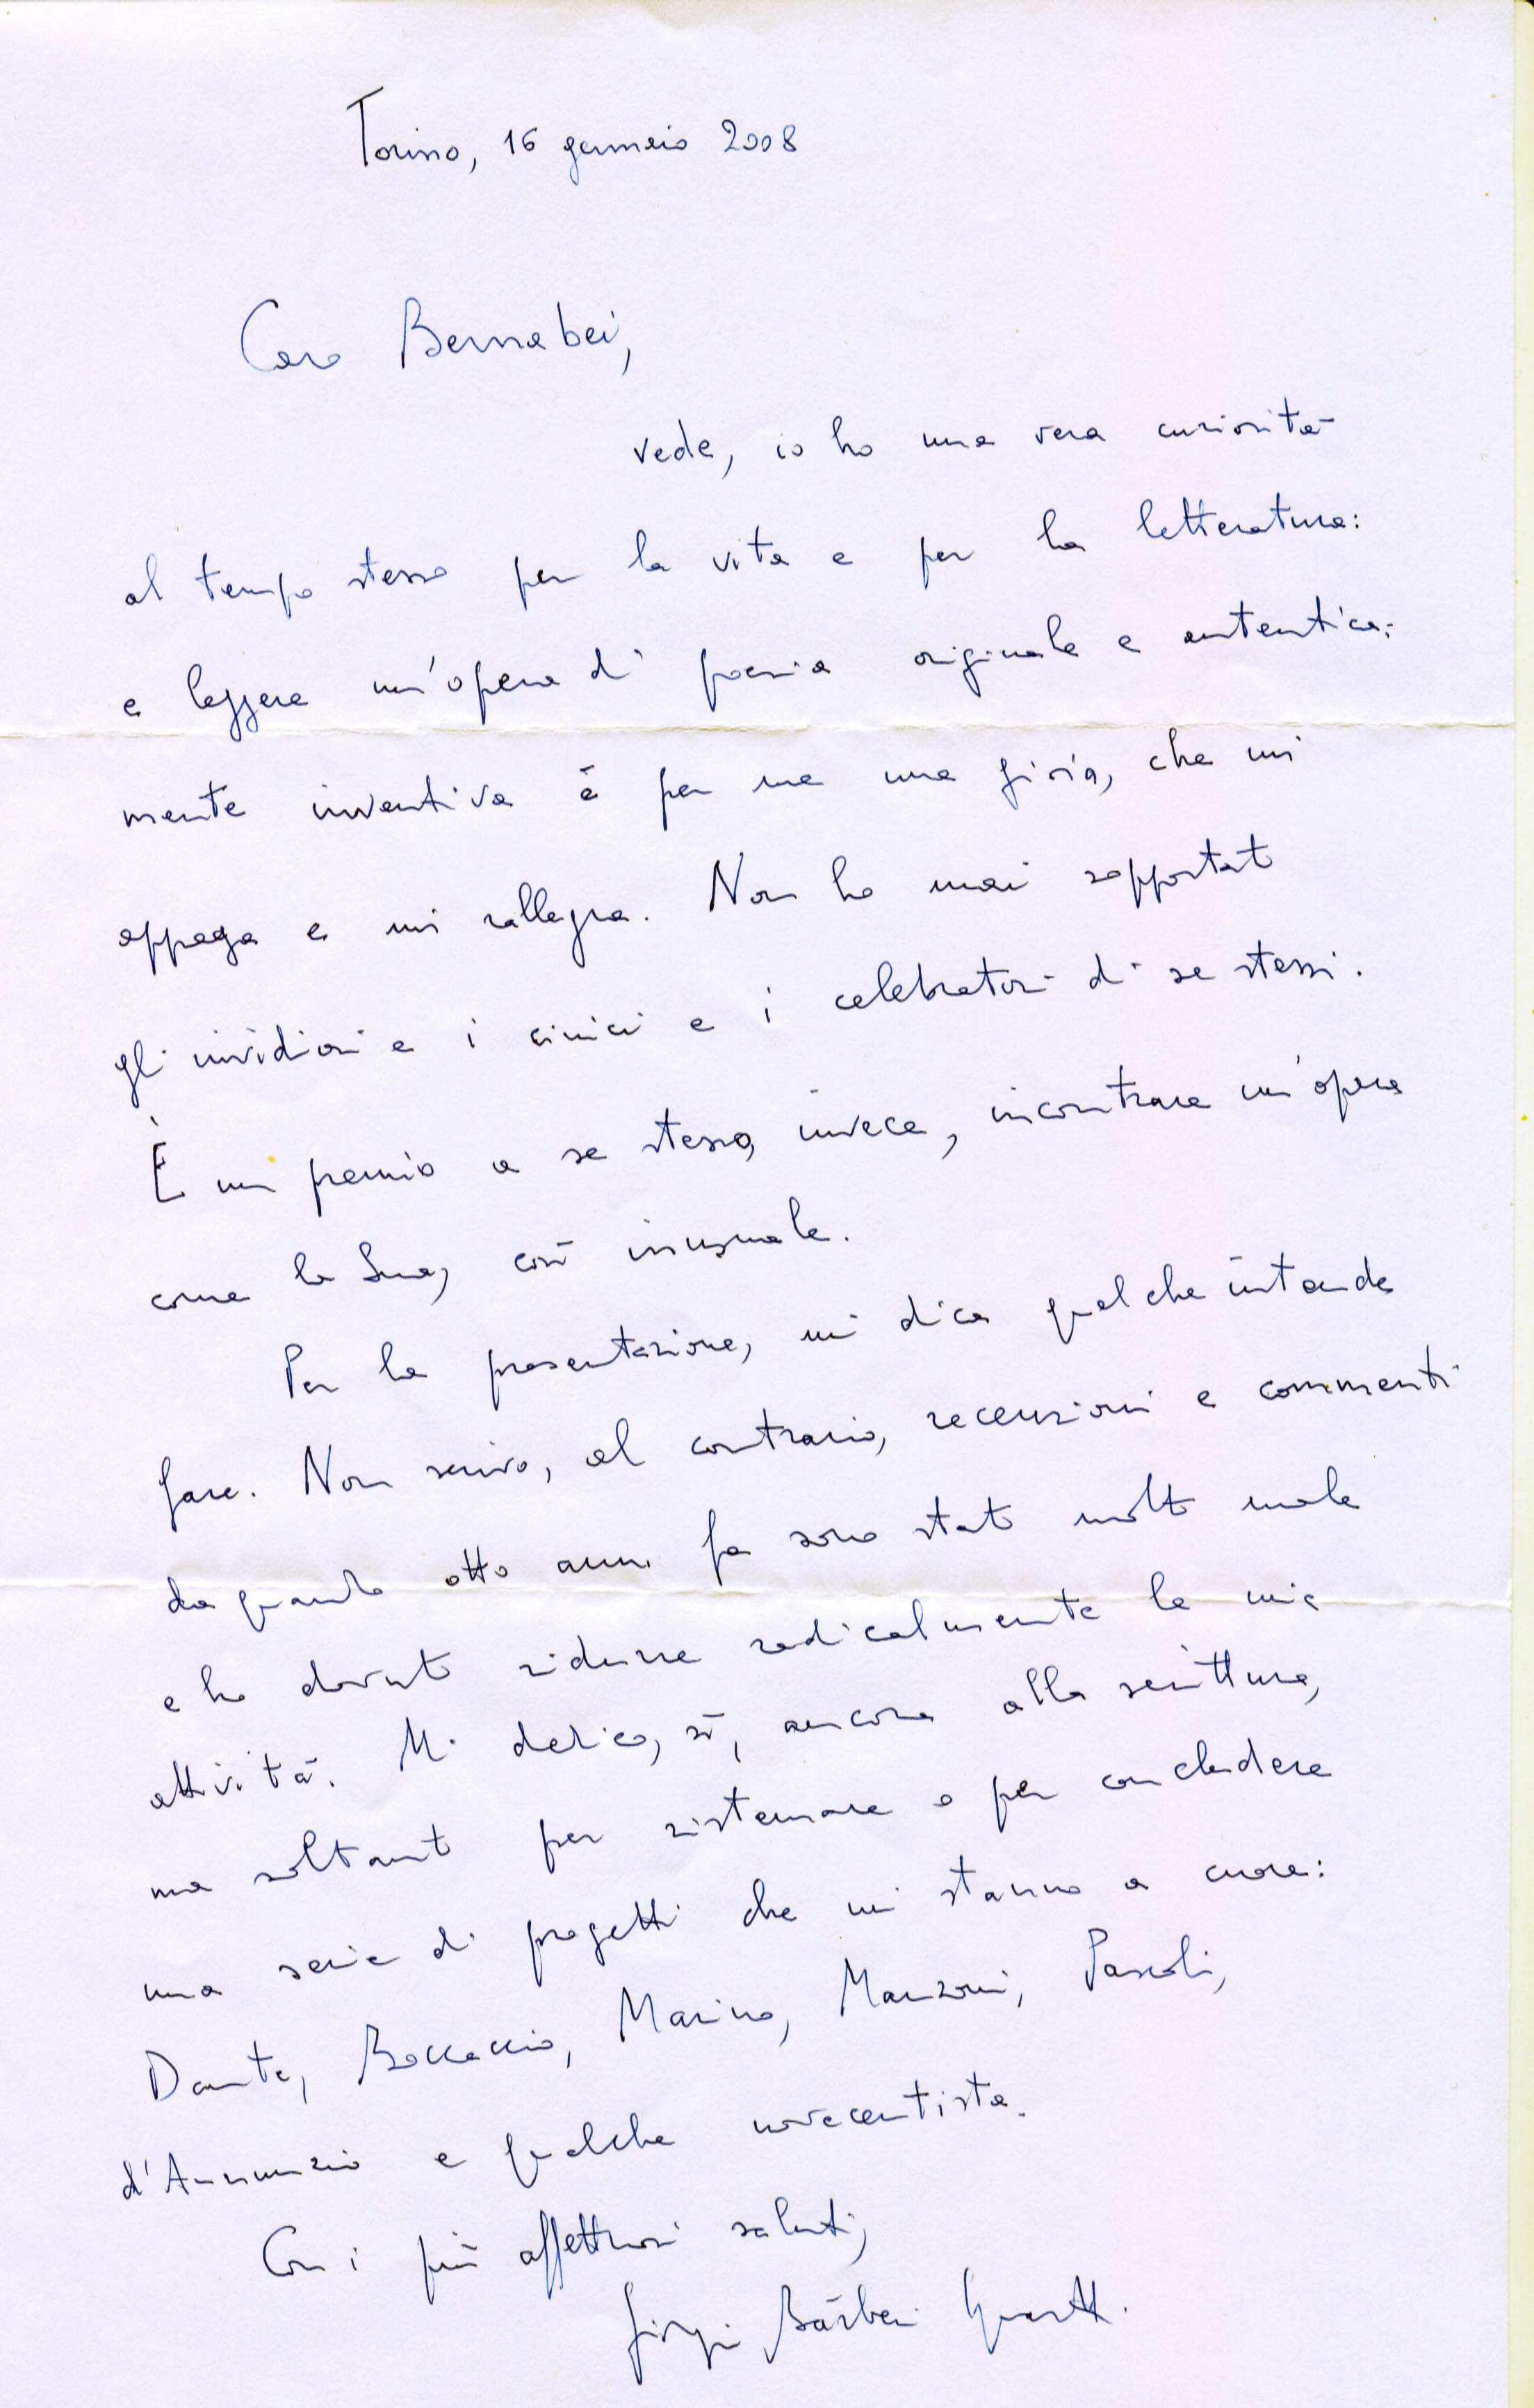 Torino, 16 gennaio 2008
Caro Bernabei,
vede, io ho una vera curiosità
al tempo stesso per la vita e per la letteratura:
e leggere un'opera di poesia originale e autentica-
mente inventiva è per me una gioia, che mi
appaga e mi rallegra. Non ho mai sopportato
gli invidiosi e i cinici e i celebratori di se stessi.
È un premio a se stesso, invece, incontrare un'opera
come la Sua, così inusuale.
Per la presentazione, mi dica quel che intende
fare. Non scrivo, al contrario, recensioni e commenti
da quando otto anni fa sono stato molto male
e ho dovuto ridurre radicalmente la mia
attività. Mi dedico, sì, ancora alla scrittura,
ma soltanto per sistemare o per concludere
una serie di progetti che mi stanno a cuore:
Dante, Boccaccio, Marino, Manzoni, Pascoli,
d'Annunzio e qualche novecentista.
Con i più affettuosi saluti,
Giorgio Bàrberi Squarotti.